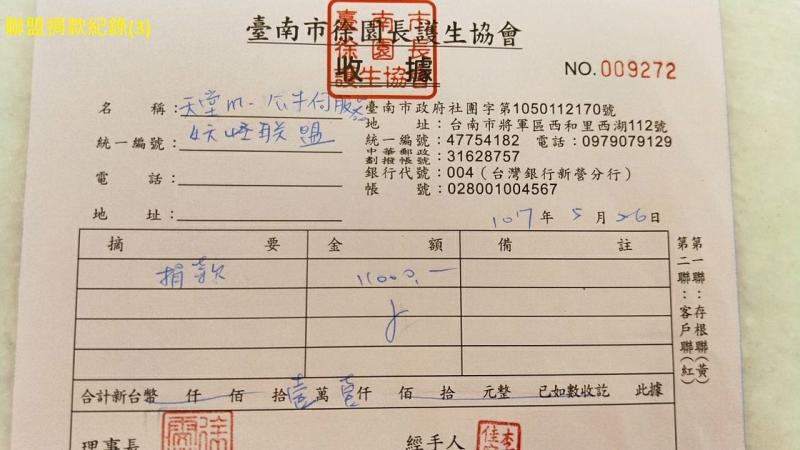 聯盟捐款紀錄(3)
臺南市徐園長護生協會
收據
臺南市徐園長護生協會
NO. 009272
名 稱：天堂M-瓜牛伺服器
联盟
統一編號：
電 話：
地 址：
臺南市政府社團字第1050112170號
地 址：台南市將軍區西和里西湖112號
統一編號：47754182 電話：0979079129
中華郵政劃撥帳號：31628757
銀行代號：004（台灣銀行新營分行）
帳 號：028001004567
107年5月26日
摘 要 金 額 備 註
捐款 11000.-
合計新台幣 仟 佰 拾壹萬壹仟 佰 拾 元整 已如數收訖 此據
第一聯：存根聯（黃）
第二聯：客戶聯（紅
理事長
經手人